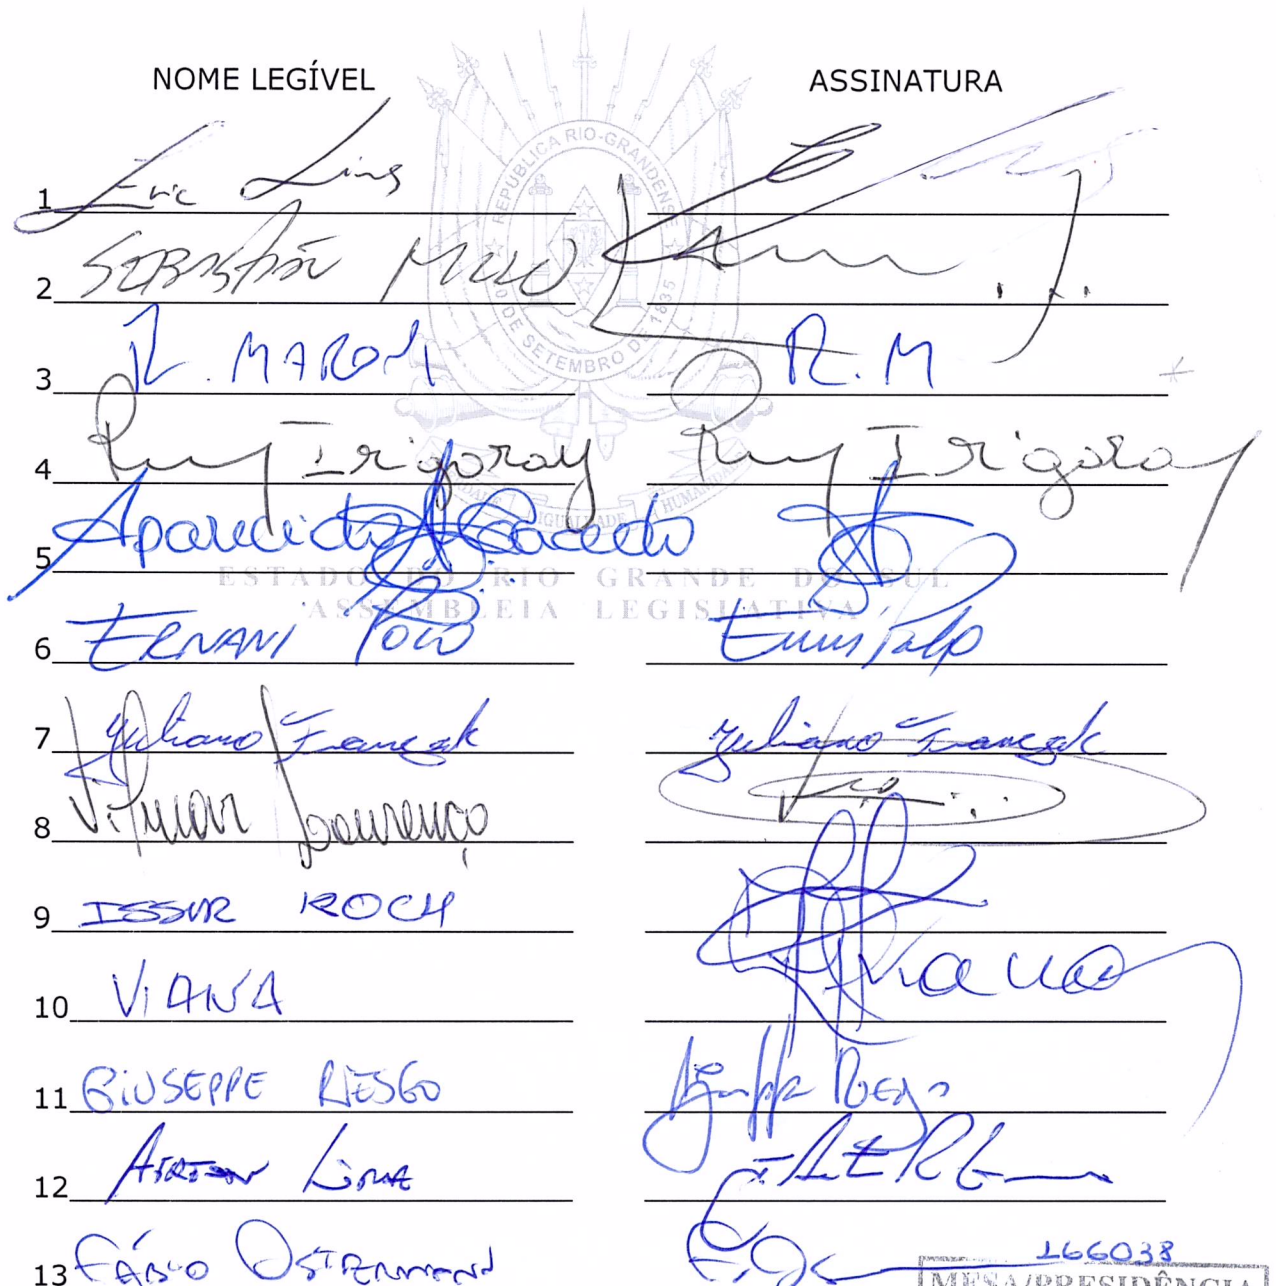 NOME LEGÍVEL ASSINATURA
REPUBLICA RIO-GRANDENSE
20 DE SETEMBRO DE 1835
LIBERDADE IGUALDADE HUMANIDADE
ESTADO DO RIO GRANDE DO SUL
ASSEMBLEIA LEGISLATIVA
1 Eric Lins
2 SEBASTIÃO MELO
3 R. MARONI R.M
4 Ruy Irigaray Ruy Irigaray
5 Aparecido Macedo
6 ERNANI POLO
7 Juliano Franczak Juliano Franczak
8 Vilmar Lourenço
9 ISSUR KOCH
10 VIANA Viana
11 GIUSEPPE RIESGO Giuseppe Riesgo
12 AIRTON LIMA
13 FÁBIO OSTERMANN
166038
MESA/PRESIDÊNCIA